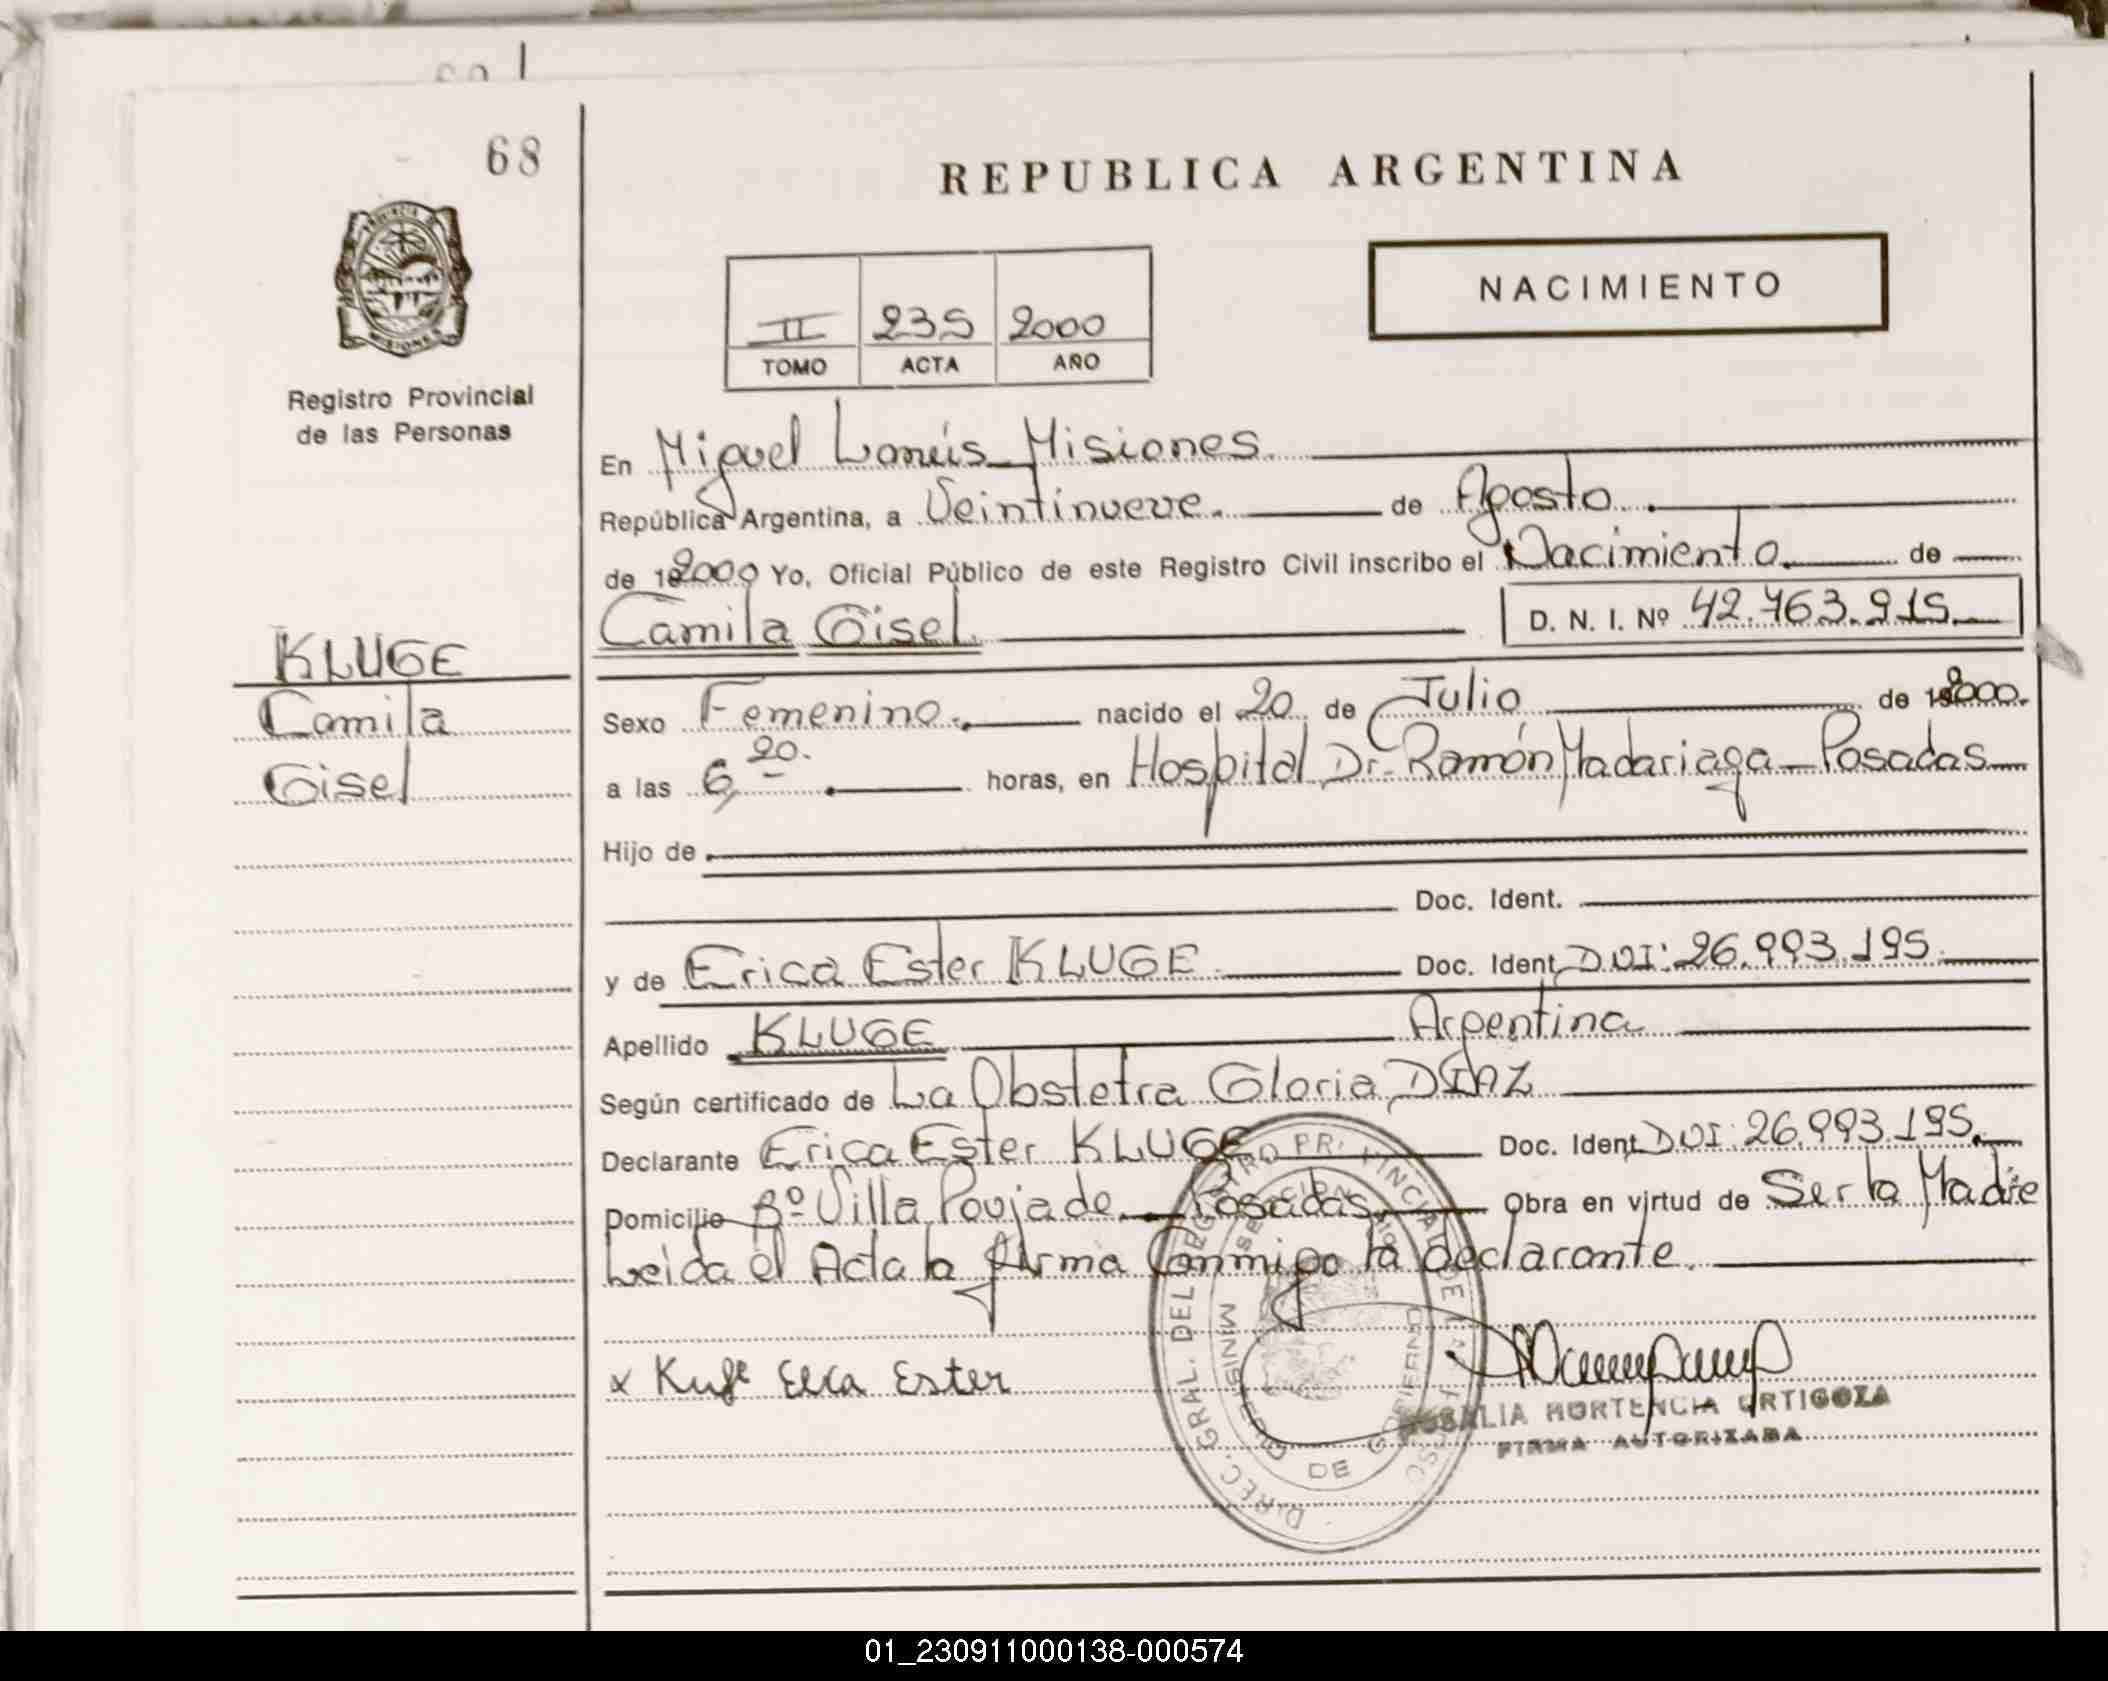 68
REPUBLICA ARGENTINA
NACIMIENTO
II 235 2000
TOMO ACTA AÑO
PROVINCIA DE MISIONES
Registro Provincial
de las Personas
En Miguel Lanús - Misiones.
República Argentina, a Veintinueve. de Agosto.
de 2000 Yo, Oficial Público de este Registro Civil inscribo el Nacimiento. de
Camila Gisel. D. N. I. Nº 42.763.915.
KLUGE
Camila
Gisel
Sexo Femenino. nacido el 20 de Julio de 2000.
a las 6,20. horas, en Hospital Dr. Ramón Madariaga - Posadas
Hijo de
Doc. Ident.
y de Erica Ester KLUGE. Doc. Ident. DNI: 26.993.195.
Apellido KLUGE Argentina
Según certificado de La Obstetra Gloria DÍAZ
Declarante Erica Ester KLUGE Doc. Ident. DNI: 26.993.195.
Domicilio Bº Villa Poujade. Posadas. Obra en virtud de Ser la Madre
Leida el Acta la firma Conmigo la declarante.
x Erica Ester
ORTIGOZA
FIRMA AUTORIZADA
DIREC. GRAL. DEL REGISTRO PROVINCIAL DE
MINISTERIO DE GOBIERNO
01_230911000138-000574